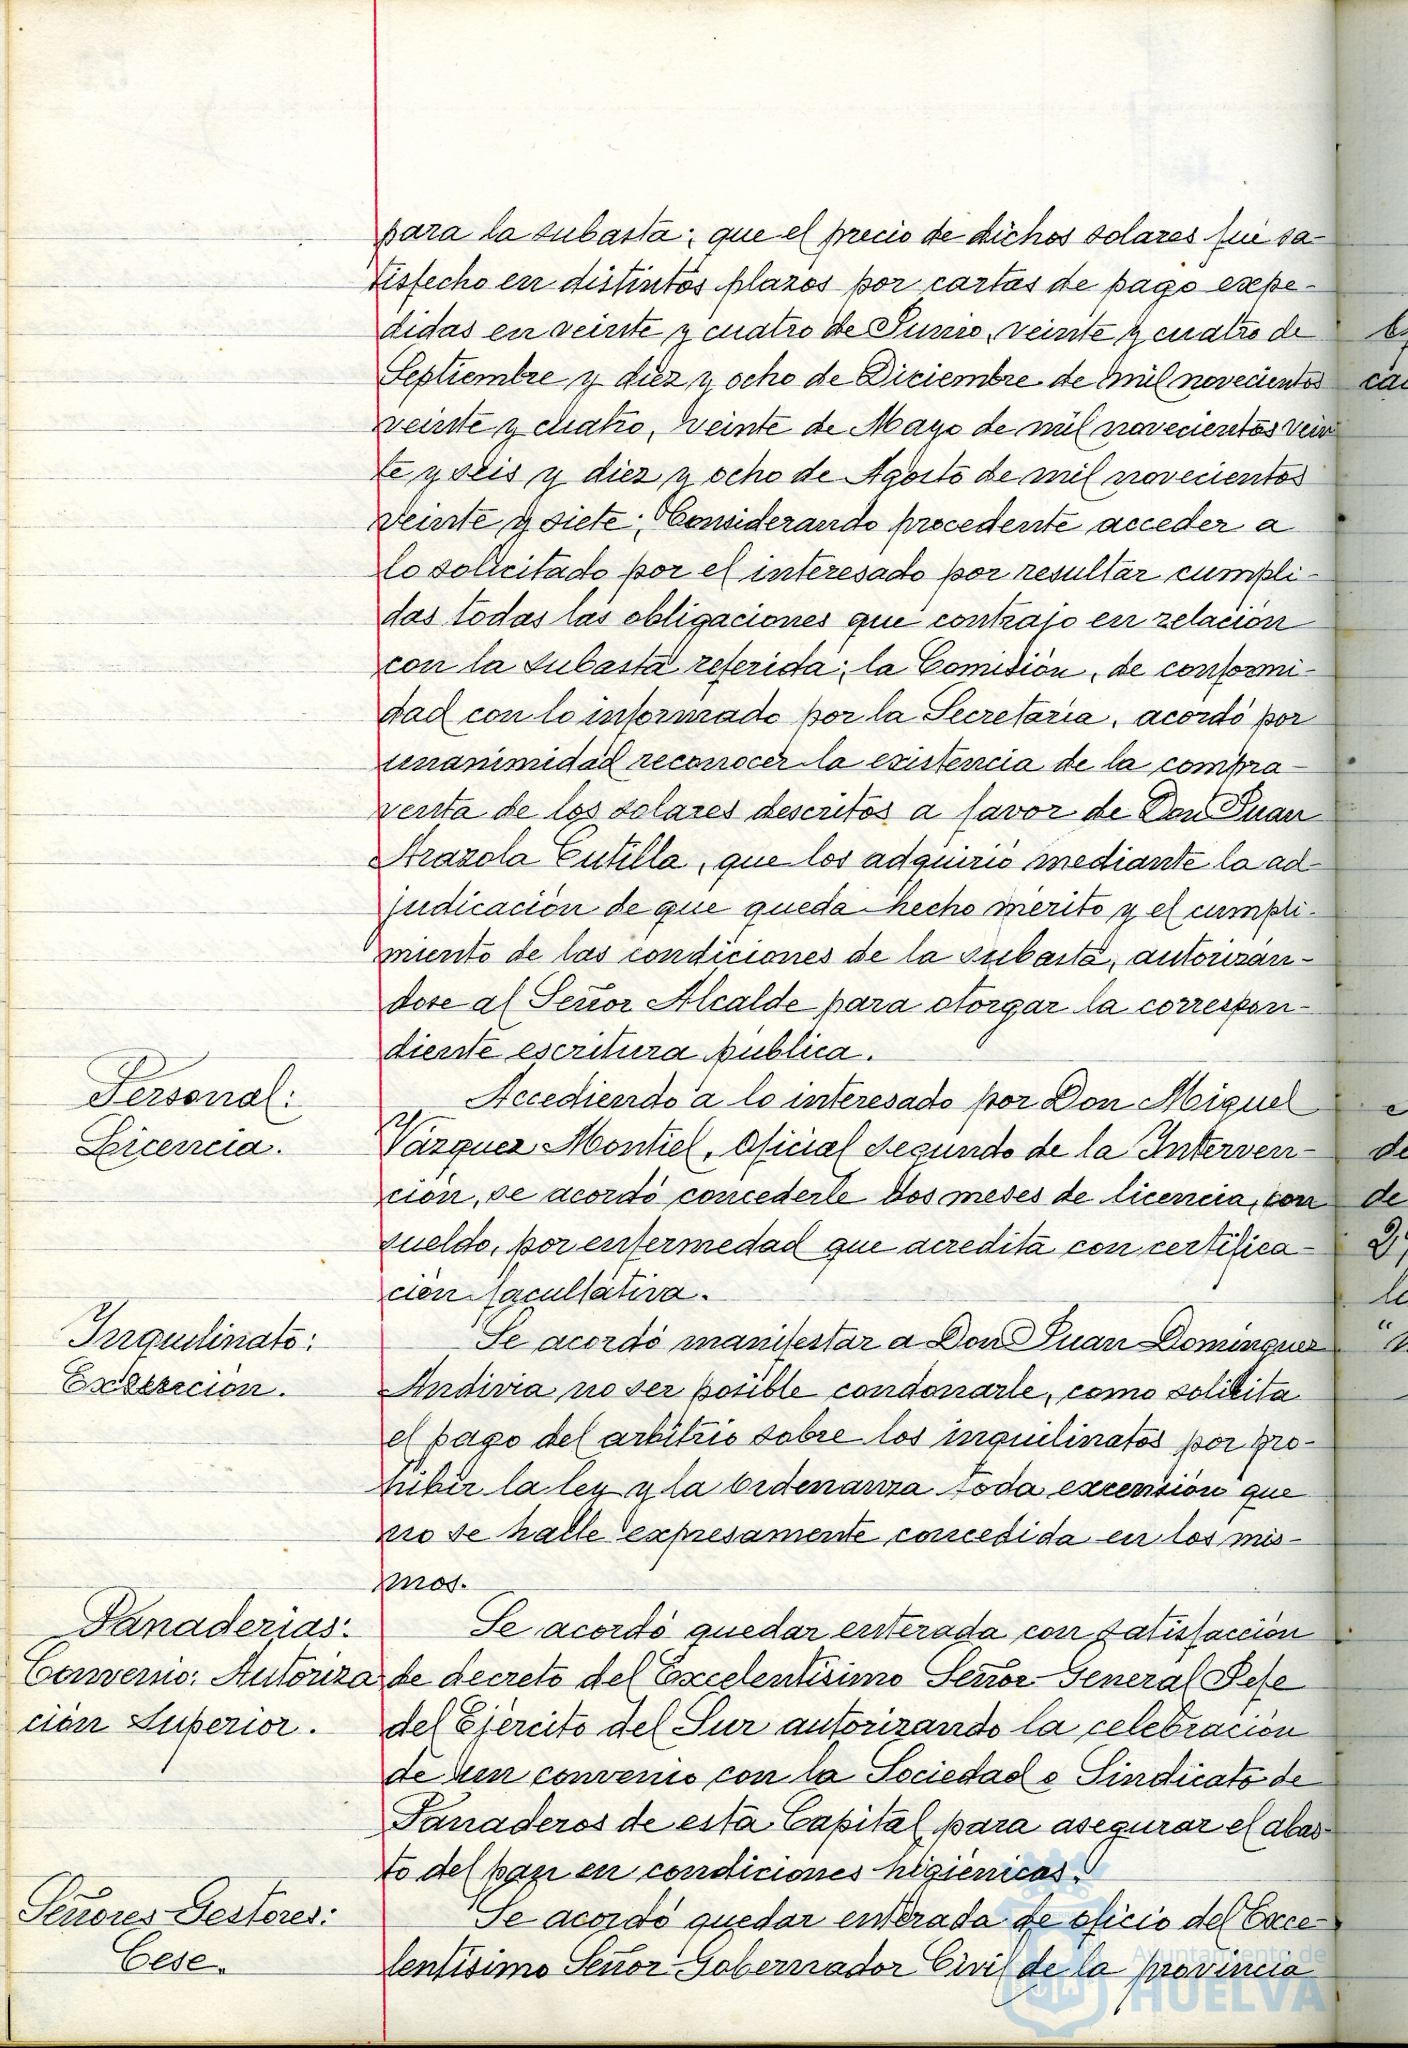 para la subasta; que el precio de dichos solares fué sa-
tisfecho en distintos plazos por cartas de pago expe-
didas en veinte y cuatro de Junio, veinte y cuatro de
Septiembre y diez y ocho de Diciembre de mil novecientos
veinte y cuatro, veinte de Mayo de mil novecientos vein
te y seis y diez y ocho de Agosto de mil novecientos
veinte y siete; Considerando procedente acceder a
lo solicitado por el interesado por resultar cumpli-
das todas las obligaciones que contrajo en relación
con la subasta referida; la Comisión, de conformi-
dad con lo informado por la Secretaría, acordó por
unanimidad reconocer la existencia de la compra-
venta de los solares descritos a favor de Don Juan
Arazola Cutilla, que los adquirió mediante la ad-
judicación de que queda hecho mérito y el cumpli-
miento de las condiciones de la subasta, autorizán-
dose al Señor Alcalde para otorgar la correspon-
diente escritura pública.
Personal:
Licencia.
Accediendo a lo interesado por Don Miguel
Vázquez Montiel, Oficial segundo de la Interven-
ción, se acordó concederle dos meses de licencia, con
sueldo, por enfermedad que acredita con certifica-
ción facultativa.
Inquilinato:
Se acordó manifestar a Don Juan Dominguez
Andivia no ser posible condonarle, como solicita
el pago del arbitrio sobre los inquilinatos por pro-
hibir la ley y la Ordenanza toda excensión que
no se halle expresamente concedida en los mis-
mos.
Panaderías:
Convenio: Autoriza
ción Superior.
Se acordó quedar enterada con satisfacción
de decreto del Excelentísimo Señor General Jefe
del Ejército del Sur autorizando la celebración
de un convenio con la Sociedad o Sindicato de
Panaderos de esta Capital para asegurar el abas-
to del pan en condiciones higiénicas.
Señores Gestores:
Cese.
Se acordó quedar enterada de oficio del Exce-
lentísimo Señor Gobernador Civil de la provincia
Ayuntamiento de
HUELVA